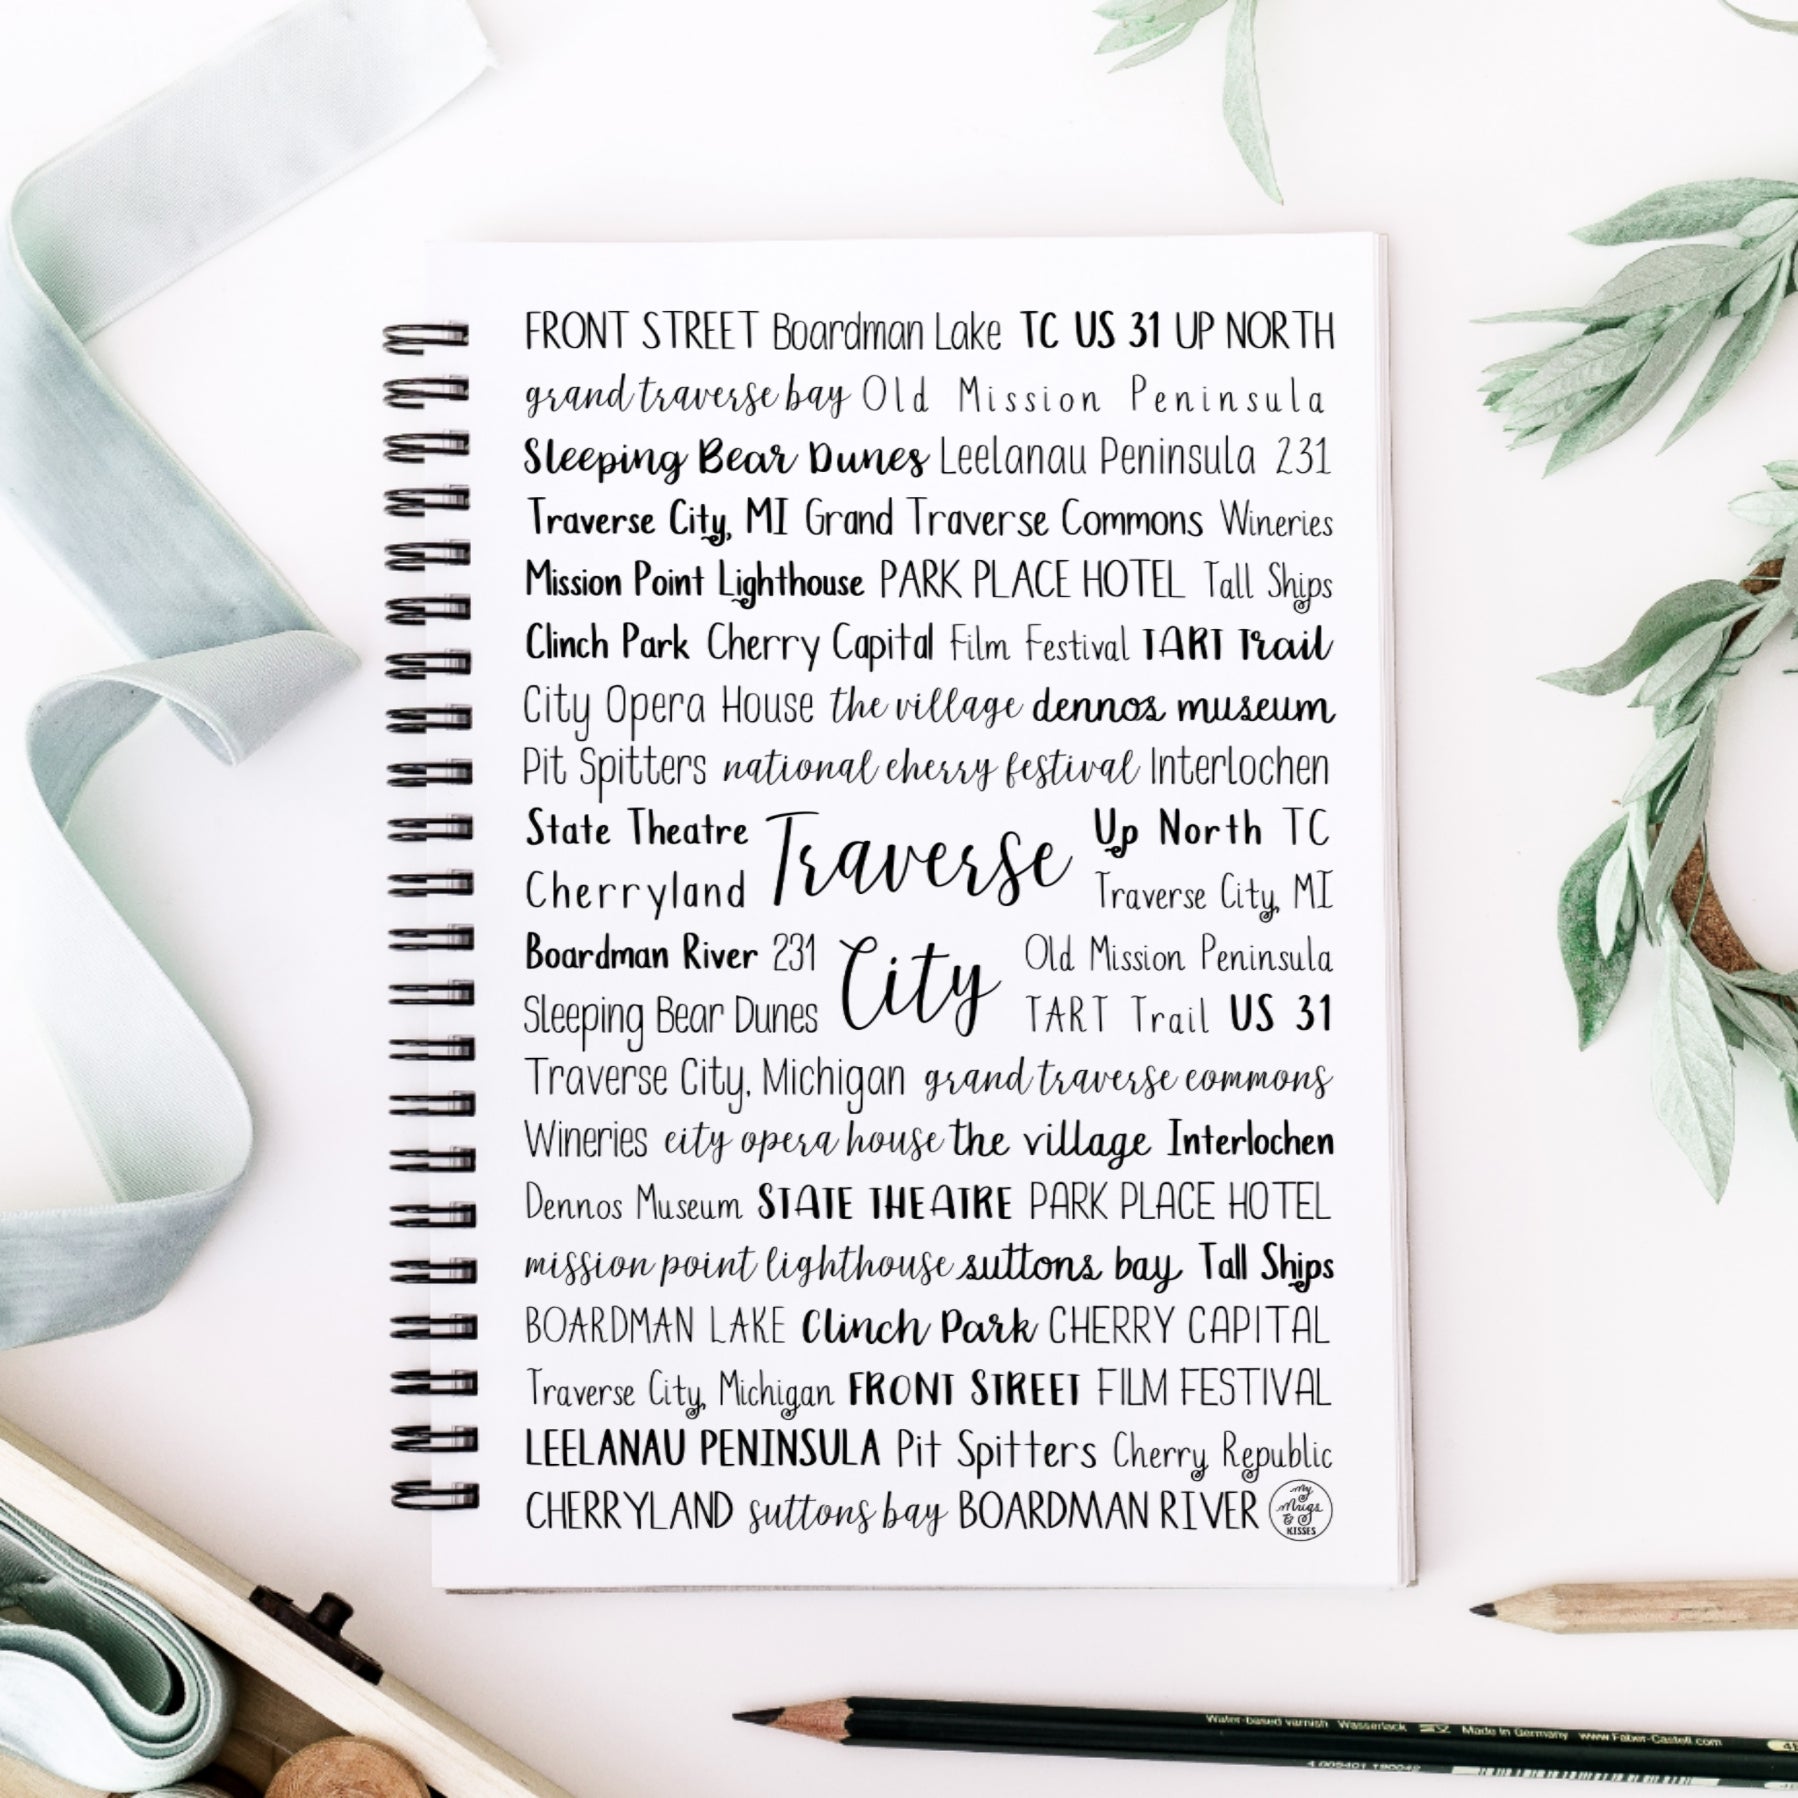 FRONT STREET Boardman Lake TC US 31 UP NORTH
grand traverse bay Old Mission Peninsula
Sleeping Bear Dunes Leelanau Peninsula 231
Traverse City, MI Grand Traverse Commons Wineries
Mission Point Lighthouse PARK PLACE HOTEL Tall Ships
Clinch Park Cherry Capital Film Festival TART Trail
City Opera House the village dennos museum
Pit Spitters national cherry festival Interlochen
State Theatre
Cherryland
Traverse
Up North TC
Traverse City, MI
Boardman River 231
Sleeping Bear Dunes
City
Old Mission Peninsula
TART Trail US 31
Traverse City, Michigan grand traverse commons
Wineries city opera house the village Interlochen
Dennos Museum STATE THEATRE PARK PLACE HOTEL
mission point lighthouse suttons bay Tall Ships
BOARDMAN LAKE Clinch Park CHERRY CAPITAL
Traverse City, Michigan FRONT STREET FILM FESTIVAL
LEELANAU PENINSULA Pit Spitters Cherry Republic
CHERRYLAND suttons bay BOARDMAN RIVER
My
Mugs
&
KISSES
Water-based varnish Wasserlack Made in Germany www.Faber-Castell.com
4 005401 190042